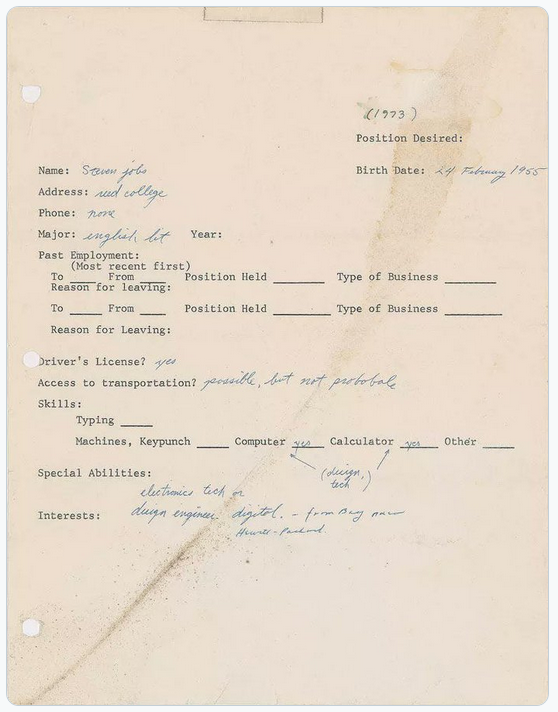 (1973)
Position Desired:
Name: Steven jobs Birth Date: 24 February 1955
Address: reed college
Phone: none
Major: english lit Year:
Past Employment:
(Most recent first)
To ____ From ____ Position Held ________ Type of Business ________
Reason for leaving:
To ____ From ____ Position Held ________ Type of Business ________
Reason for Leaving:
Driver's License? yes
Access to transportation? possible, but not probable
Skills:
Typing ____
Machines, Keypunch ____ Computer yes Calculator yes Other ____
(design, tech)
Special Abilities:
electronics tech or
Interests: design engineer. digital. - from Bay near
Hewitt-Packard.